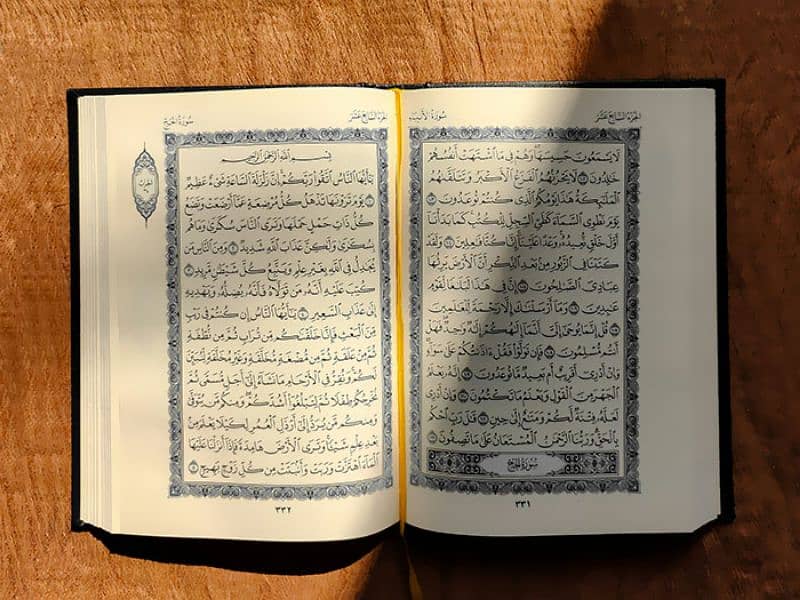 الجزء السابع عشر سورة الأنبياء
لَا يَسْمَعُونَ حَسِيسَهَا وَهُمْ فِي مَا اشْتَهَتْ أَنفُسُهُمْ
خَالِدُونَ ١٠٢ لَا يَحْزُنُهُمُ الْفَزَعُ الْأَكْبَرُ وَتَتَلَقَّاهُمُ
الْمَلَائِكَةُ هَٰذَا يَوْمُكُمُ الَّذِي كُنتُمْ تُوعَدُونَ ١٠٣
يَوْمَ نَطْوِي السَّمَاءَ كَطَيِّ السِّجِلِّ لِلْكُتُبِ كَمَا بَدَأْنَا
أَوَّلَ خَلْقٍ نُّعِيدُهُ وَعْدًا عَلَيْنَا إِنَّا كُنَّا فَاعِلِينَ ١٠٤ وَلَقَدْ
كَتَبْنَا فِي الزَّبُورِ مِن بَعْدِ الذِّكْرِ أَنَّ الْأَرْضَ يَرِثُهَا
عِبَادِيَ الصَّالِحُونَ ١٠٥ إِنَّ فِي هَٰذَا لَبَلَاغًا لِّقَوْمٍ
عَابِدِينَ ١٠٦ وَمَا أَرْسَلْنَاكَ إِلَّا رَحْمَةً لِّلْعَالَمِينَ
١٠٧ قُلْ إِنَّمَا يُوحَىٰ إِلَيَّ أَنَّمَا إِلَٰهُكُمْ إِلَٰهٌ وَاحِدٌ فَهَلْ
أَنتُم مُّسْلِمُونَ ١٠٨ فَإِن تَوَلَّوْا فَقُلْ آذَنتُكُمْ عَلَىٰ سَوَاءٍ
وَإِنْ أَدْرِي أَقَرِيبٌ أَم بَعِيدٌ مَّا تُوعَدُونَ ١٠٩ إِنَّهُ يَعْلَمُ
الْجَهْرَ مِنَ الْقَوْلِ وَيَعْلَمُ مَا تَكْتُمُونَ ١١٠ وَإِنْ أَدْرِي
لَعَلَّهُ فِتْنَةٌ لَّكُمْ وَمَتَاعٌ إِلَىٰ حِينٍ ١١١ قَالَ رَبِّ احْكُم
بِالْحَقِّ وَرَبُّنَا الرَّحْمَٰنُ الْمُسْتَعَانُ عَلَىٰ مَا تَصِفُونَ ١١٢
سورة الحج
٣٣١
الجزء السابع عشر سورة الحج
بِسْمِ اللَّهِ الرَّحْمَٰنِ الرَّحِيمِ
يَا أَيُّهَا النَّاسُ اتَّقُوا رَبَّكُمْ إِنَّ زَلْزَلَةَ السَّاعَةِ شَيْءٌ عَظِيمٌ
١ يَوْمَ تَرَوْنَهَا تَذْهَلُ كُلُّ مُرْضِعَةٍ عَمَّا أَرْضَعَتْ وَتَضَعُ
كُلُّ ذَاتِ حَمْلٍ حَمْلَهَا وَتَرَى النَّاسَ سُكَارَىٰ وَمَا هُم
بِسُكَارَىٰ وَلَٰكِنَّ عَذَابَ اللَّهِ شَدِيدٌ ٢ وَمِنَ النَّاسِ مَن
يُجَادِلُ فِي اللَّهِ بِغَيْرِ عِلْمٍ وَيَتَّبِعُ كُلَّ شَيْطَانٍ مَّرِيدٍ ٣
كُتِبَ عَلَيْهِ أَنَّهُ مَن تَوَلَّاهُ فَأَنَّهُ يُضِلُّهُ وَيَهْدِيهِ
إِلَىٰ عَذَابِ السَّعِيرِ ٤ يَا أَيُّهَا النَّاسُ إِن كُنتُمْ فِي رَيْبٍ
مِّنَ الْبَعْثِ فَإِنَّا خَلَقْنَاكُم مِّن تُرَابٍ ثُمَّ مِن نُّطْفَةٍ
ثُمَّ مِنْ عَلَقَةٍ ثُمَّ مِن مُّضْغَةٍ مُّخَلَّقَةٍ وَغَيْرِ مُخَلَّقَةٍ لِّنُبَيِّنَ
لَكُمْ وَنُقِرُّ فِي الْأَرْحَامِ مَا نَشَاءُ إِلَىٰ أَجَلٍ مُّسَمًّى ثُمَّ
نُخْرِجُكُمْ طِفْلًا ثُمَّ لِتَبْلُغُوا أَشُدَّكُمْ وَمِنكُم مَّن يُتَوَفَّىٰ
وَمِنكُم مَّن يُرَدُّ إِلَىٰ أَرْذَلِ الْعُمُرِ لِكَيْلَا يَعْلَمَ مِن
بَعْدِ عِلْمٍ شَيْئًا وَتَرَى الْأَرْضَ هَامِدَةً فَإِذَا أَنزَلْنَا عَلَيْهَا
الْمَاءَ اهْتَزَّتْ وَرَبَتْ وَأَنبَتَتْ مِن كُلِّ زَوْجٍ بَهِيجٍ ٥
الحزب
٣٣٢